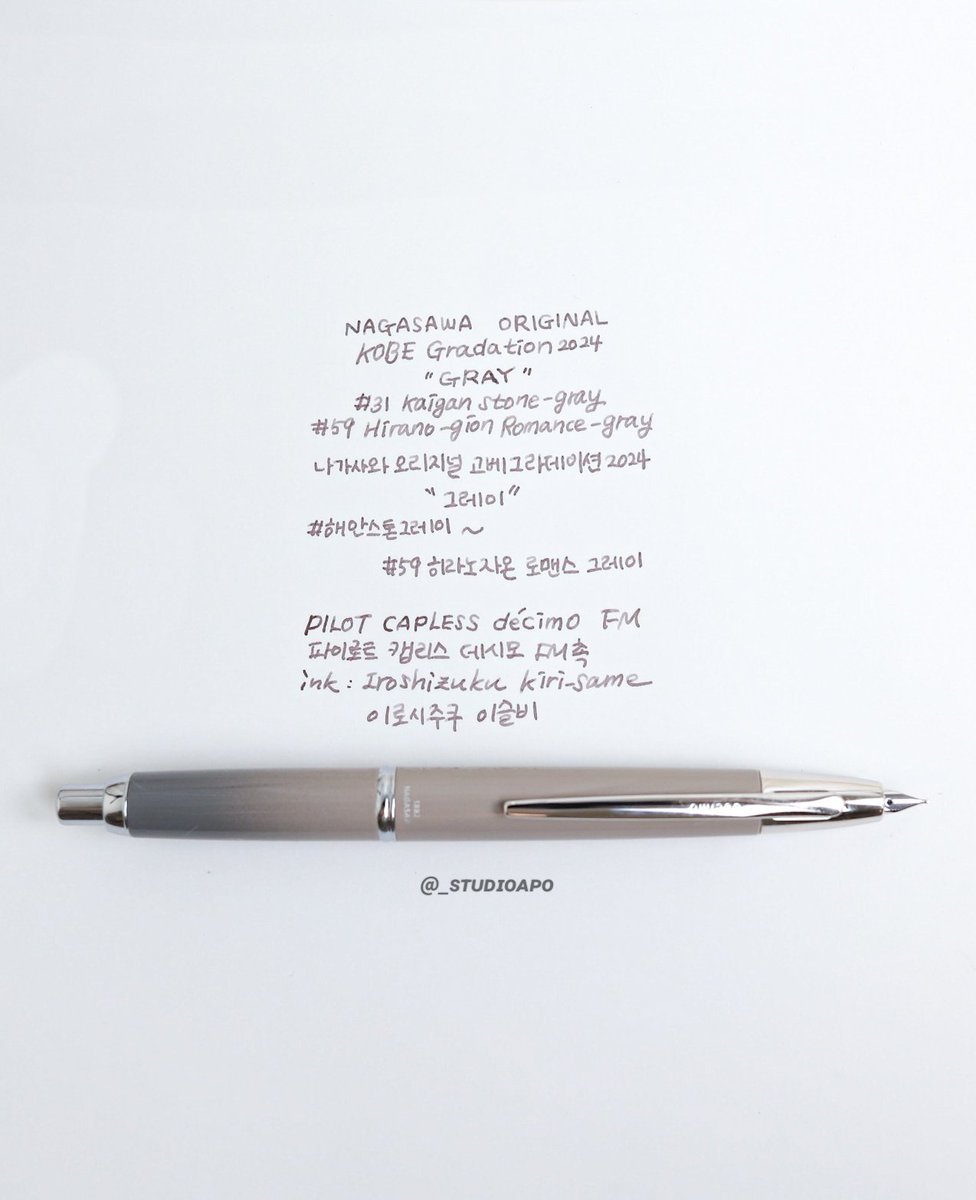 NAGASAWA ORIGINAL
KOBE Gradation 2024
"GRAY"
#31 Kaigan stone-gray
#59 Hirano-gion Romance-gray
나가사와 오리지널 고베그라데이션 2024
"그레이"
#해안스톤그레이 ~
#59 히라노자온 로맨스 그레이
PILOT CAPLESS décimo FM
파이로트 캡리스 데시모 FM촉
ink : Iroshizuku kiri-same
이로시주쿠 이슬비
@_STUDIOAPO